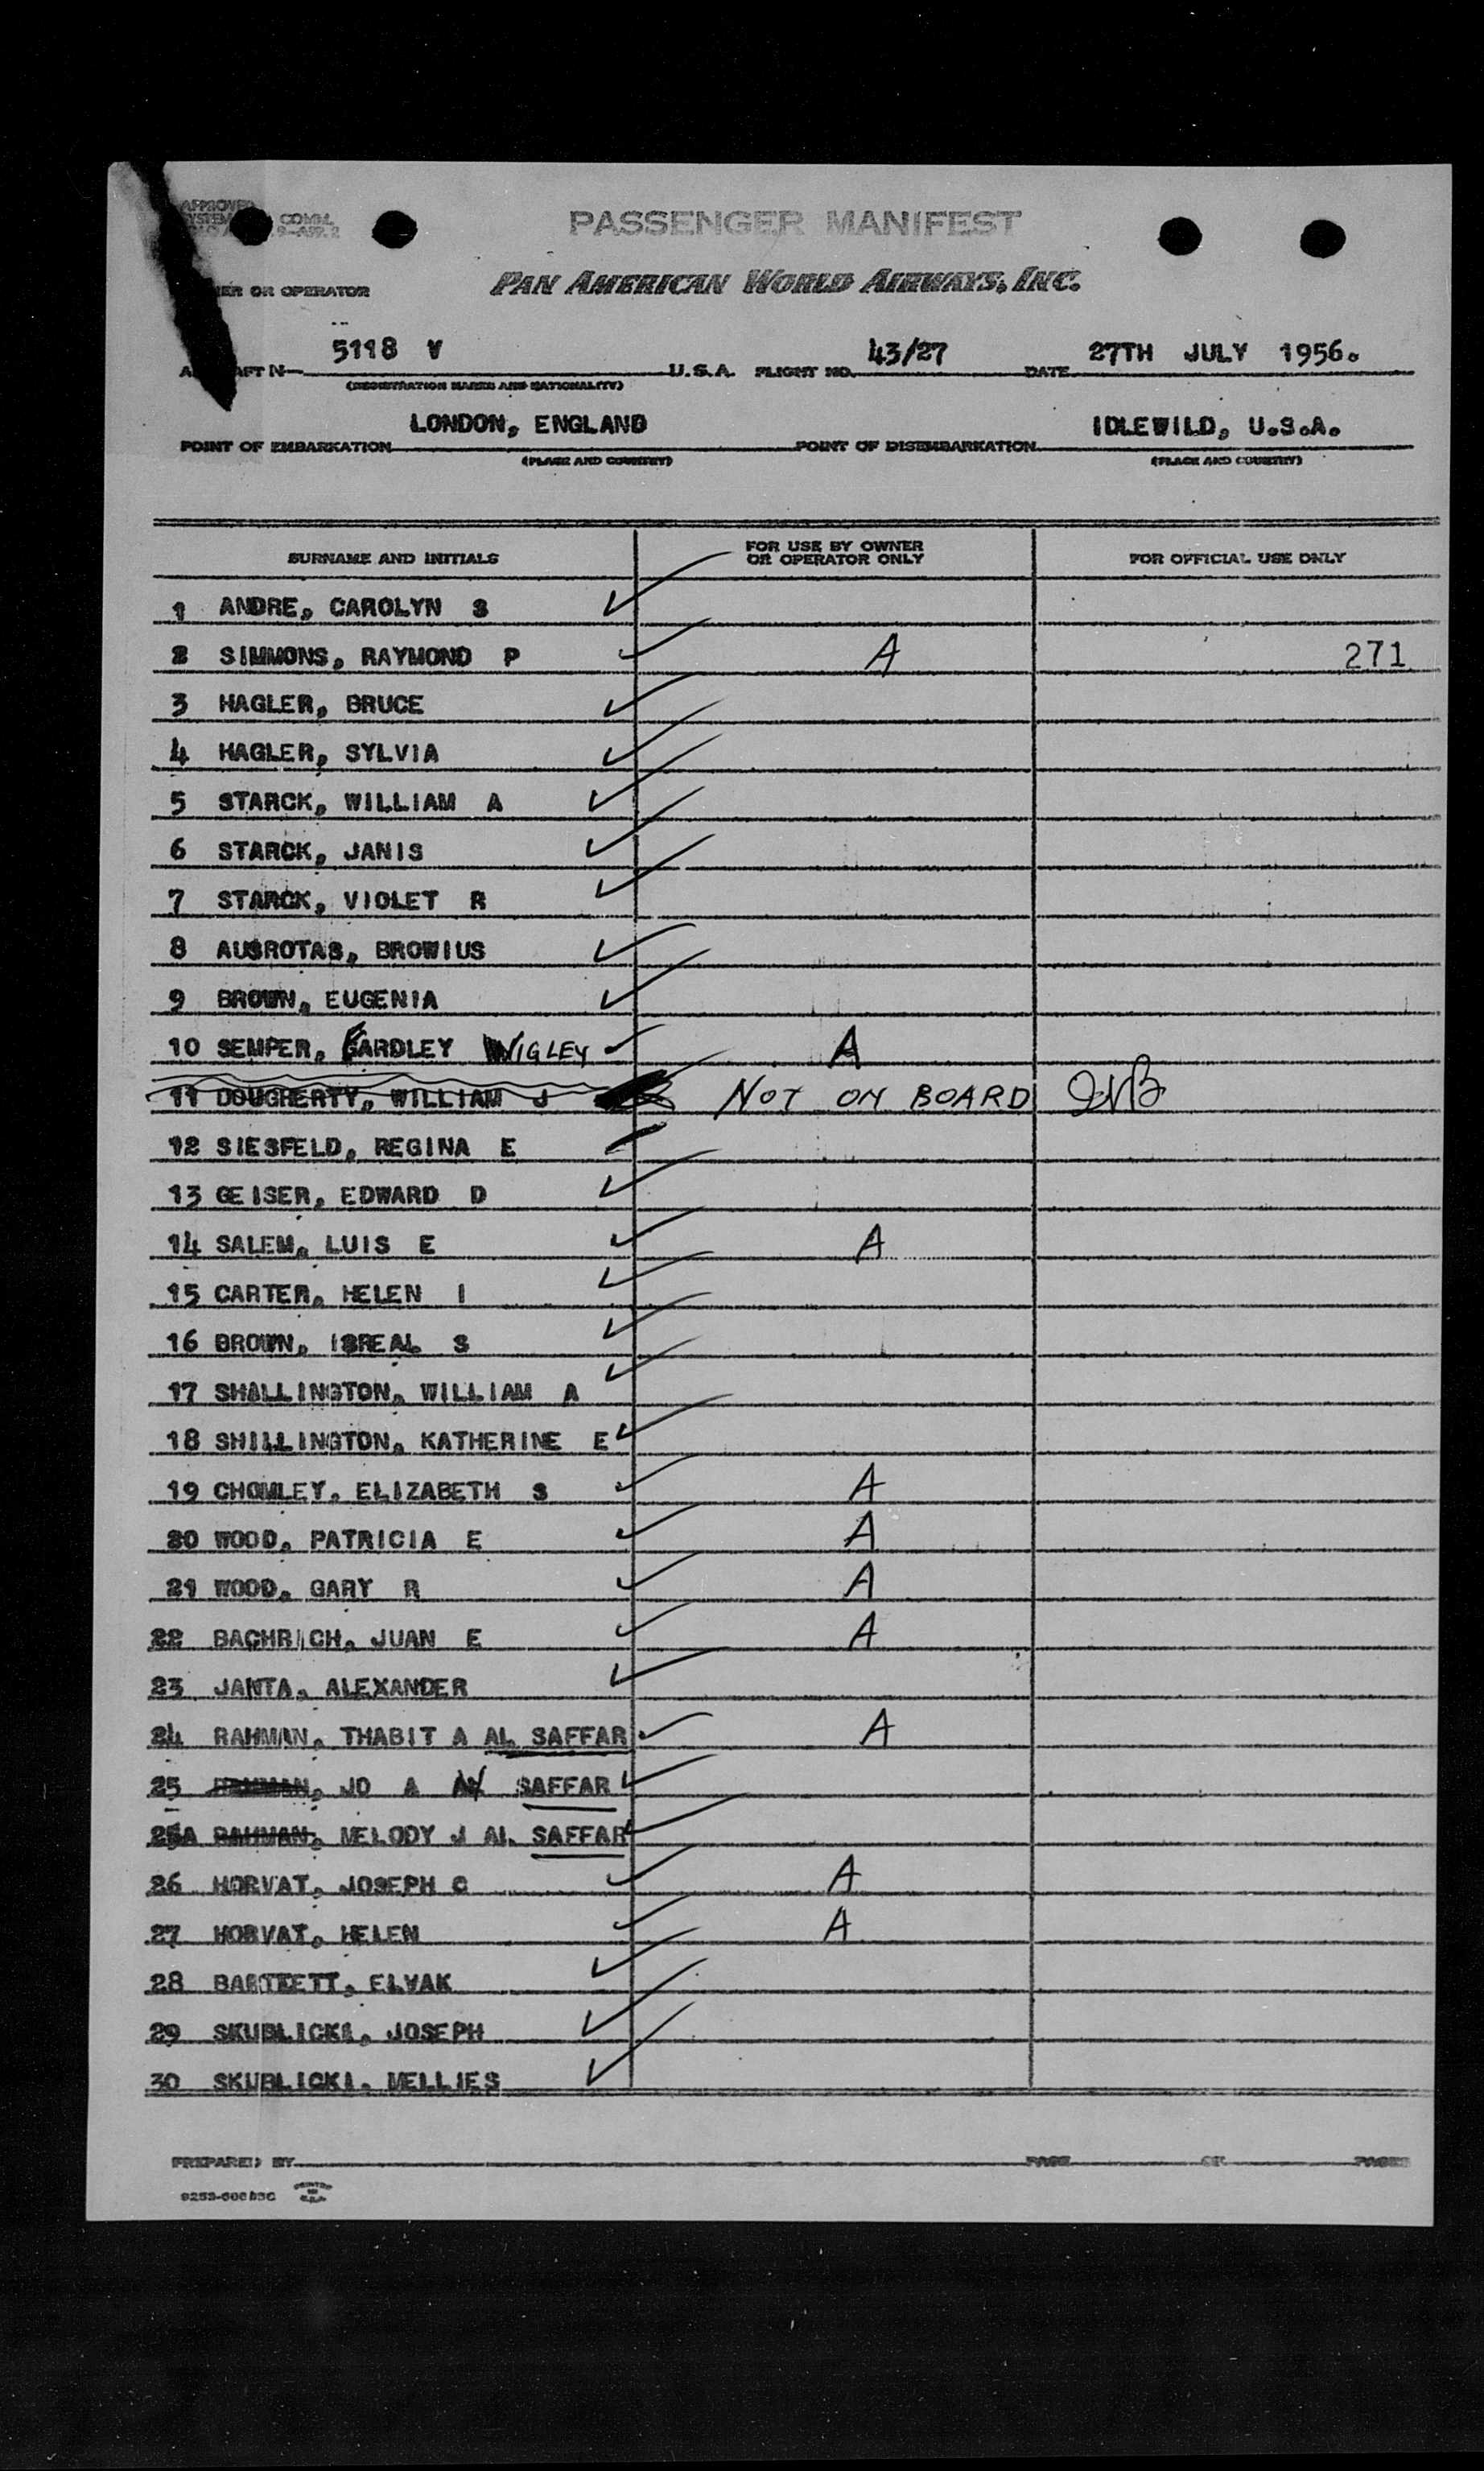 APPROVED
SYSTEM COMM.
9-APP. 2
PASSENGER MANIFEST
OR OPERATOR
PAN AMERICAN WORLD AIRWAYS, INC.
5118 V U.S.A. FLIGHT NO. 43/27 DATE 27TH JULY 1956.
(REGISTRATION MARKS AND NATIONALITY)
POINT OF EMBARKATION LONDON, ENGLAND POINT OF DISEMBARKATION IDLEWILD, U.S.A.
(PLACE AND COUNTRY) (PLACE AND COUNTRY)
SURNAME AND INITIALS FOR USE BY OWNER OR OPERATOR ONLY FOR OFFICIAL USE ONLY
1 ANDRE, CAROLYN S
2 SIMMONS, RAYMOND P A 271
3 HAGLER, BRUCE
4 HAGLER, SYLVIA
5 STARCK, WILLIAM A
6 STARCK, JANIS
7 STARCK, VIOLET R
8 AUSROTAS, BROWIUS
9 BROWN, EUGENIA
10 SEMPER, EARDLEY WIGLEY A
11 DOUGHERTY, WILLIAM J NOT ON BOARD
12 SIESFELD, REGINA E
13 GEISER, EDWARD D
14 SALEM, LUIS E A
15 CARTER, HELEN I
16 BROWN, ISREAL S
17 SHALLINGTON, WILLIAM A
18 SHILLINGTON, KATHERINE E
19 CHOMLEY, ELIZABETH S A
20 WOOD, PATRICIA E A
21 WOOD, GARY R A
22 BACHRICH, JUAN E A
23 JANTA, ALEXANDER
24 RAHMAN, THABIT A AL SAFFAR A
25 RAHMAN, JO A AL SAFFAR
25A RAHMAN, MELODY J AL SAFFAR
26 HORVAT, JOSEPH C A
27 HORVAT, HELEN A
28 BARTKETT, ELVAK
29 SKUBLICKI, JOSEPH
30 SKUBLICKI, MELLIES
PREPARED BY PAGE OF PAGES
PRINTED IN U.S.A.